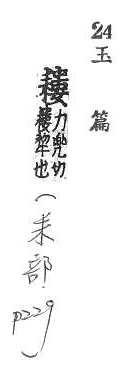 24
玉篇
耬
力兜切
耬犂也
(耒部 p229)